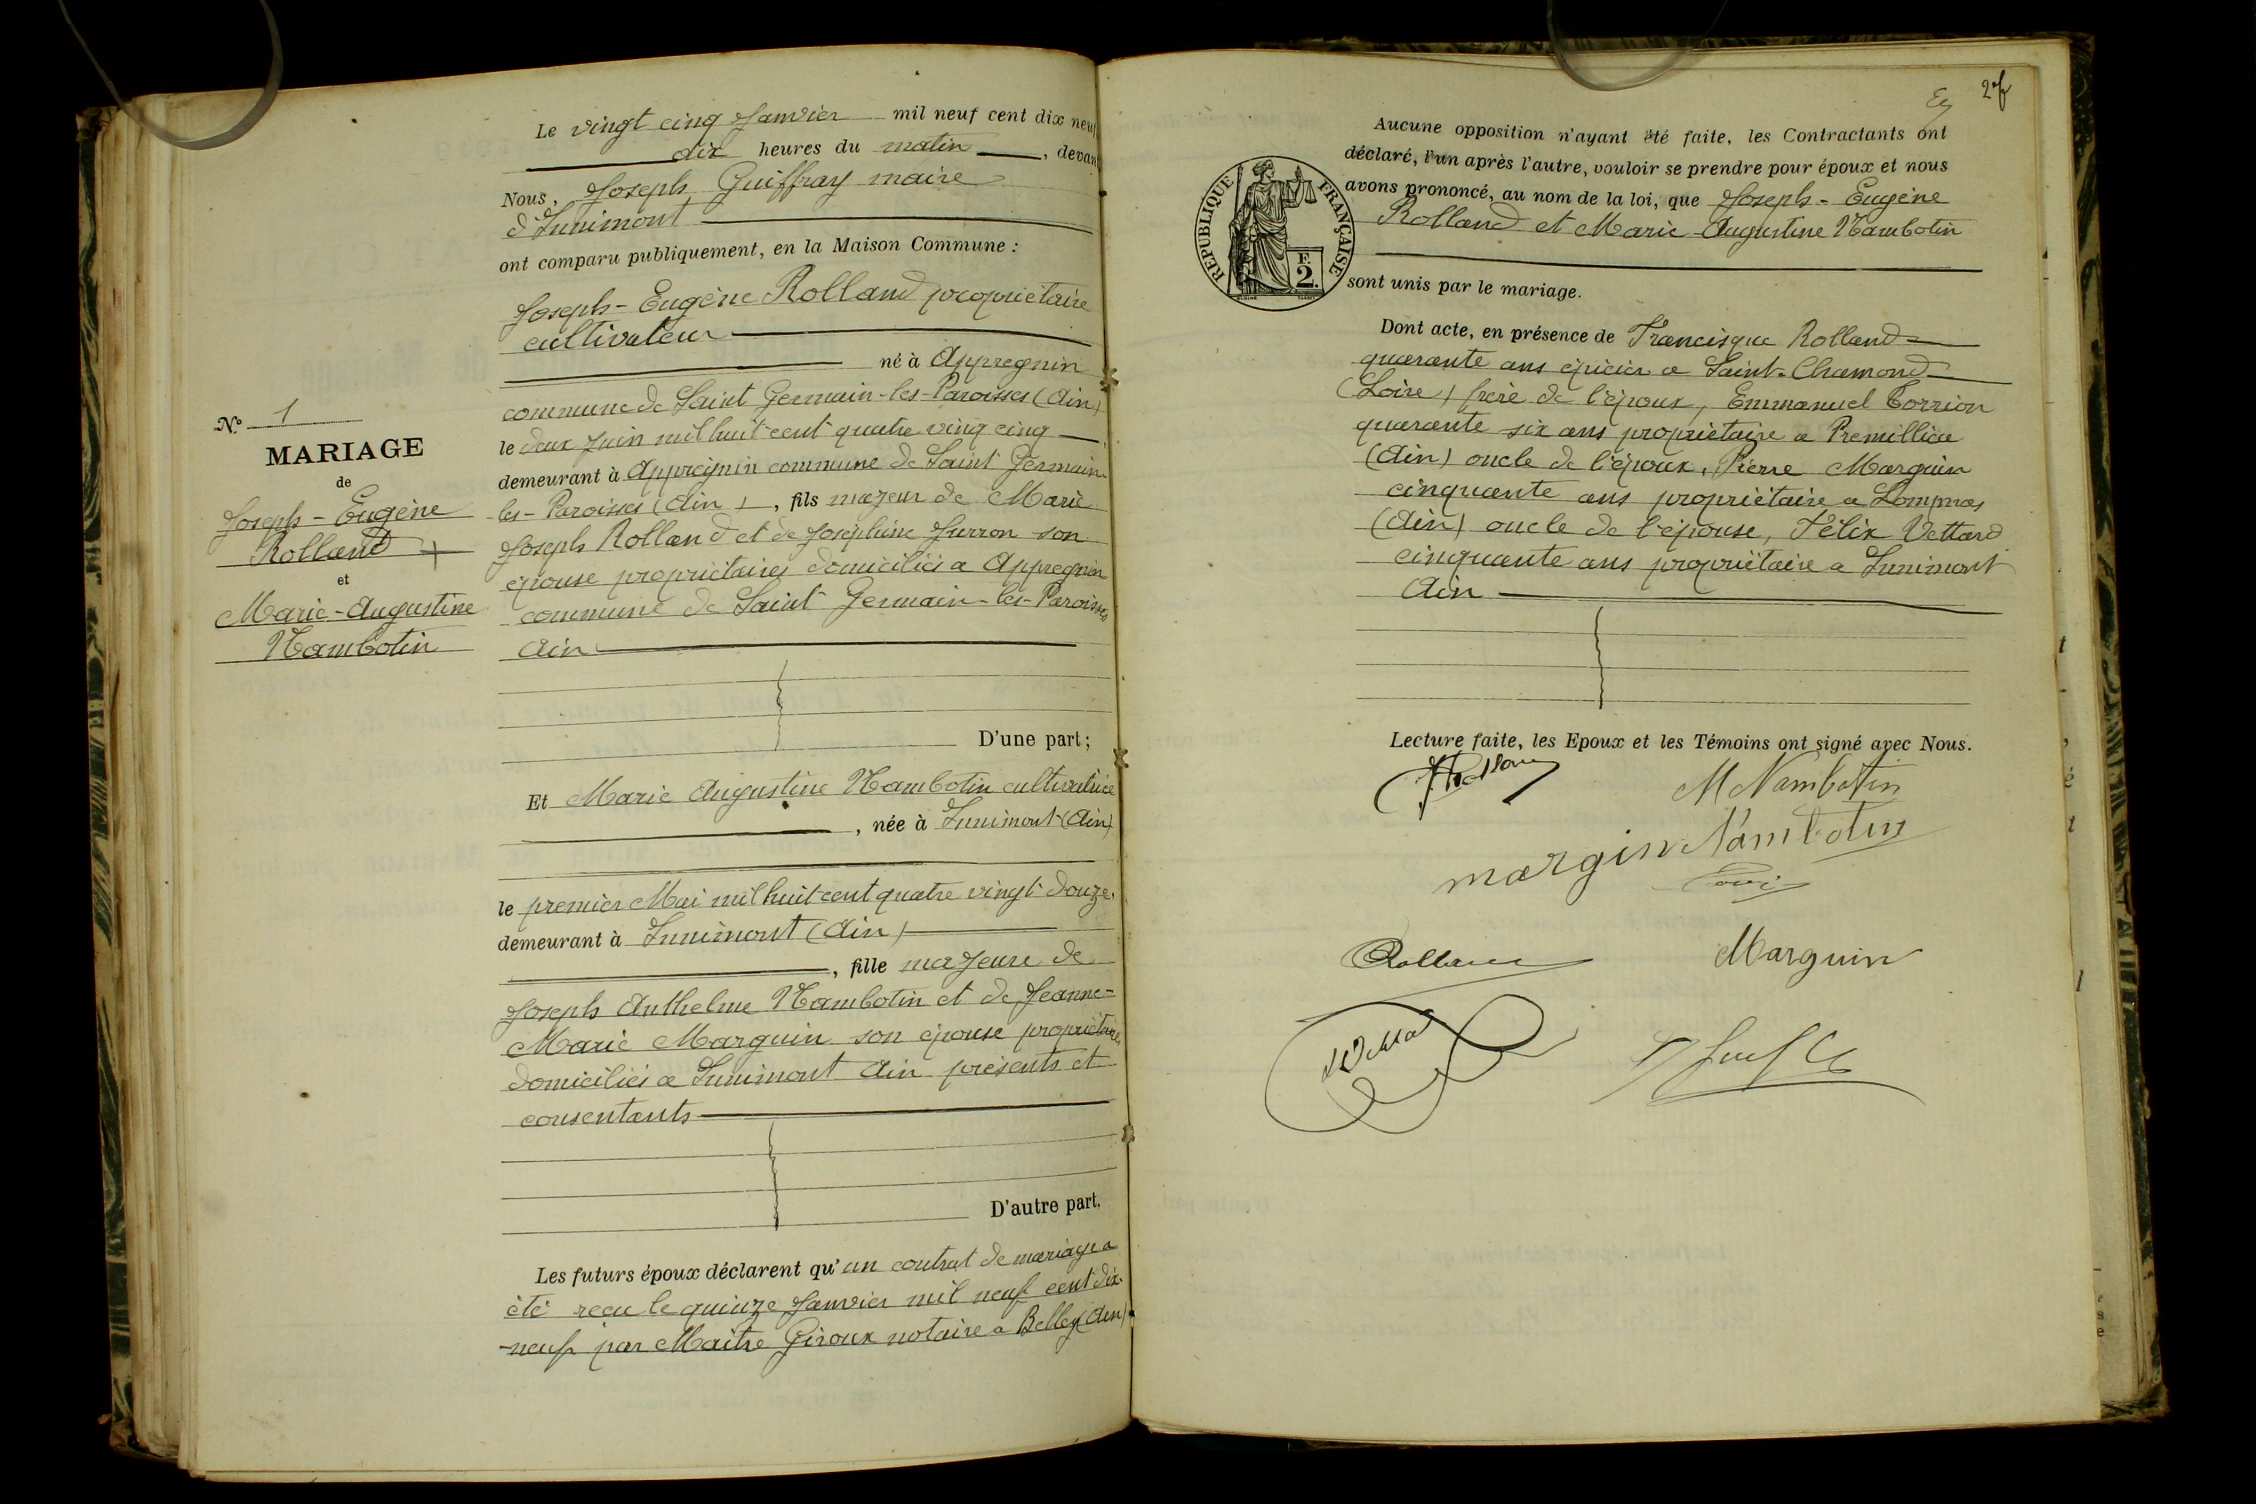 N° 1
MARIAGE
de
Joseph - Eugène
Rolland
et
Marie - Augustine
Nambotin
Le vingt cinq Janvier mil neuf cent dix neuf
dix heures du matin, devan
Nous, Joseph Guiffray maire
d'Innimont
ont comparu publiquement, en la Maison Commune :
Joseph - Eugène Rolland propriétaire
cultivateur
né à Appregnin
commune de Saint Germain-les-Paroisses (Ain)
le deux Juin mil huit cent quatre ving cinq
demeurant à Appregnin commune de Saint Germain
les-Paroisses (Ain), fils majeur de Marie
Joseph Rolland et de Joséphine Jurron son
épouse propriétaires domiciliés a Appregnin
commune de Saint Germain-les-Paroisses
Ain
D'une part ;
Et Marie Augustine Nambotin cultivatrice
, née à Innimont (Ain)
le premier Mai mil huit cent quatre vingt douze.
demeurant à Innimont (Ain)
, fille majeure de
Joseph Anthelme Nambotin et de Jeanne-
Marie Marguin son épouse propriétaires
domiciliés a Innimont Ain présents et
consentants
D'autre part.
Les futurs époux déclarent qu'un contrat de mariage a
été reçu le quinze Janvier mil neuf cent dix-
neuf par Maitre Giroux notaire a Belley (Ain)
2
RÉPUBLIQUE FRANÇAISE
F.
2.
Aucune opposition n'ayant été faite, les Contractants ont
déclaré, l'un après l'autre, vouloir se prendre pour époux et nous
avons prononcé, au nom de la loi, que Joseph - Eugène
Rolland et Marie-Augustine Nambotin
sont unis par le mariage.
Dont acte, en présence de Francisque Rolland
quarante ans épicier a Saint-Chamond
(Loire) frère de l'époux, Emmanuel Torrion
quarante six ans propriétaire a Premillieu
(Ain) oncle de l'époux, Pierre Marguin
cinquante ans propriétaire a Lompnas
(Ain) oncle de l'épouse, Félix Vettard
cinquante ans propriétaire a Innimont
Ain
Lecture faite, les Epoux et les Témoins ont signé avec Nous.
Rolland
M Nambotin
margin Nambotin
Rolland
Marguin